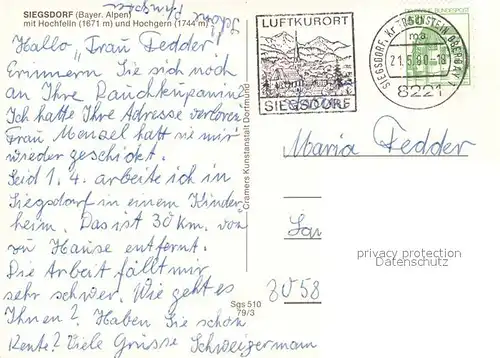 SIEGSDORF (Bayer. Alpen)
mit Hochfelln (1671 m) und Hochgern (1744 m)
Schöne Pfingsten
Hallo "Frau Fedder!
Erinnern Sie sich noch
an Ihre
Ich hatte Ihre Adresse verloren
Frau Menzel hatt sie mir
wieder geschickt.
Seid 1. 4. arbeite ich in
Siegsdorf in einem Kinder
heim. Das ist 30 km. von
zu Hause entfernt.
Die Arbeit fällt mir
sehr schwer. Wie geht es
Ihnen? Haben Sie schon
Rente? Viele Grüsse Schweigermann
Cramers Kunstanstalt Dortmund
Sgs 510
79/3
LUFTKURORT
SIEGSDORF
SIEGSDORF, Kr TRAUNSTEIN, OBERBAY
ma
21.5.80-18
8221
DEUTSCHE BUNDESPOST
Maria Fedder
privacy protection
Datenschutz
3058